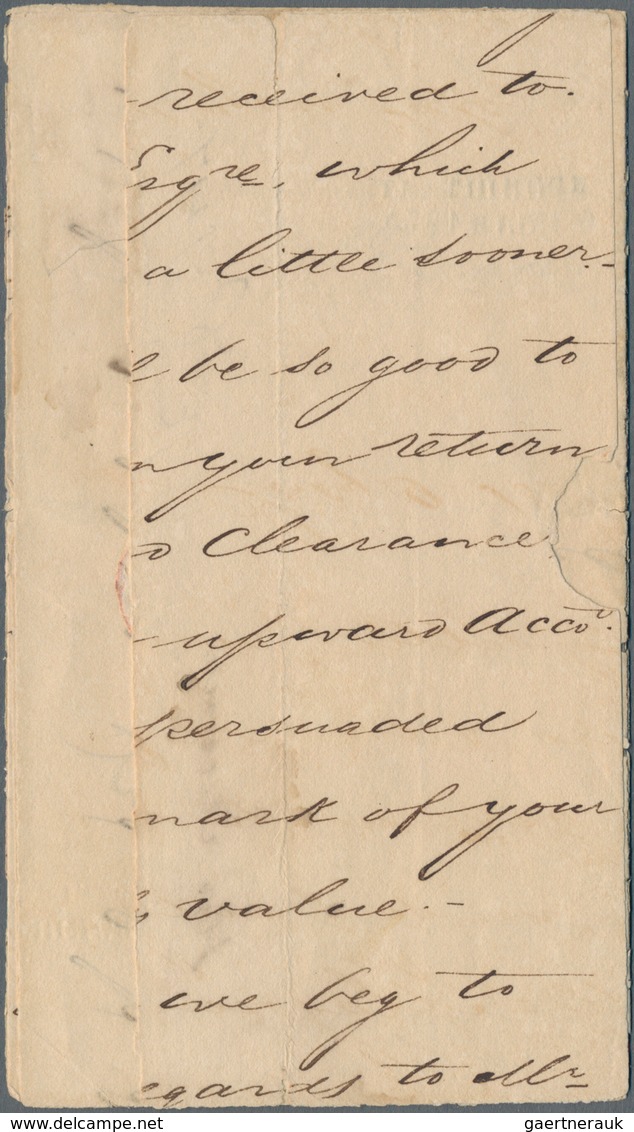 received to.
Esqre, which
a little sooner.-
be so good to
your return
Clearance
upward Acco.
persuaded
mark of your
value.-
we beg to
egards to Mr
gaertnerauk